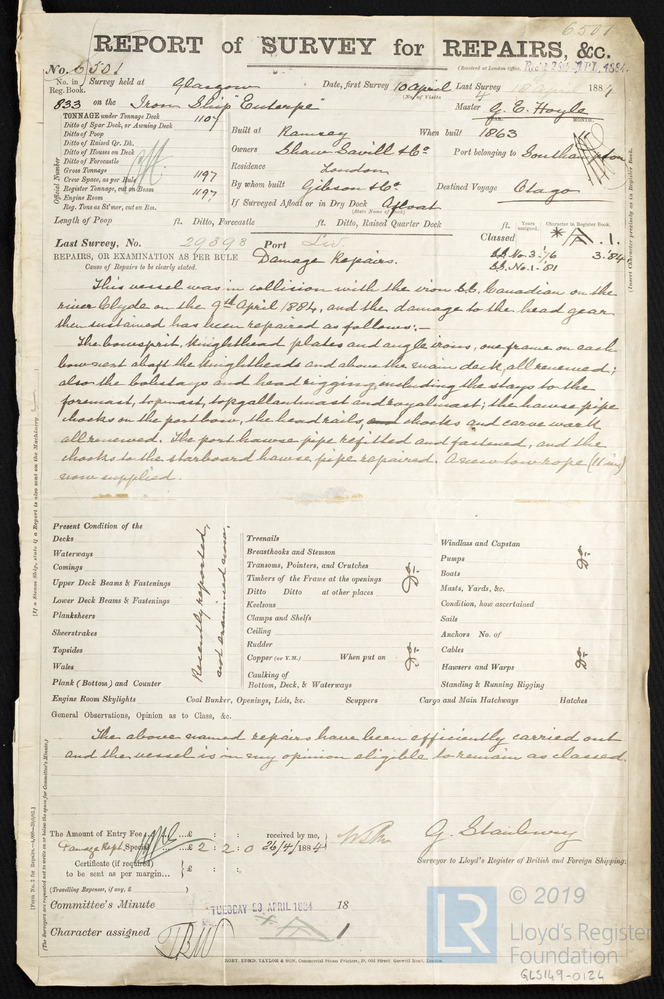 6501
REPORT of SURVEY for REPAIRS, &c.
No. 6501
(Received at London Office,
No. in Survey held at Glasgow Date, first Survey 10 April Last Survey 18 April 1884
Reg. Book.
(No. of Visits
833 on the Iron Ship "Euterpe" Master G. E. Hoyle
TONNAGE under Tonnage Deck 1107
Ditto of Spar Deck, or Awning Deck
Ditto of Poop
Ditto of Raised Qr. Dk.
Ditto of Houses on Deck
Ditto of Forecastle
Gross Tonnage 1197
Crew Space, as per Rule
Register Tonnage, cut on Beam 1197
Engine Room
Reg. Tons as St'mer, cut on Bm.
Official Number
Built at Ramsey When built 1863
YEAR. MONTH.
Owners Shaw Savill & Co Port belonging to Southampton
Residence London
By whom built Gibson & Co Destined Voyage Otago
If Surveyed Afloat or in Dry Dock Afloat
(State Name of Dock)
Length of Poop ft. Ditto, Forecastle ft. Ditto, Raised Quarter Deck ft.
Years assigned. Character in Register Book.
Last Survey, No. 29898 Port Liv. Classed A . 1.
S.S. No. 3. 76 3. 84
S.S. No. 1. 81
REPAIRS, OR EXAMINATION AS PER RULE Damage Repairs.
Cause of Repairs to be clearly stated.
This vessel was in collision with the iron S.S. Canadian on the
river Clyde on the 9th April 1884, and the damage to the head gear
then sustained has been repaired as follows:—
The bowsprit, Knighthead plates and angle irons, one frame on each
bow next abaft the Knightheads and above the main deck, all renewed;
also the bobstays and head rigging, including the stays to the
foremast, topmast, topgallantmast and royalmast; the hawse pipe
chocks on the port bow, the headrails, chocks and carve work
all renewed. The port hawse pipe refitted and fastened, and the
chocks to the starboard hawse pipe repaired. A new tow rope (11 ins)
now supplied.
Present Condition of the
Decks
Waterways
Comings
Upper Deck Beams & Fastenings
Lower Deck Beams & Fastenings
Planksheers
Sheerstrakes
Topsides
Wales
Plank (Bottom) and Counter
Recently reported,
not examined now.
Treenails
Breasthooks and Stemson
Transoms, Pointers, and Crutches
Timbers of the Frame at the openings
Ditto Ditto at other places
Keelsons
Clamps and Shelfs
Ceiling
Rudder
Copper (or Y.M.) When put on
Caulking of
Bottom, Deck, & Waterways
Do.
Do.
Windlass and Capstan
Pumps
Boats
Masts, Yards, &c.
Condition, how ascertained
Sails
Anchors No. of
Cables
Hawsers and Warps
Standing & Running Rigging
Do.
Do.
Engine Room Skylights Coal Bunker, Openings, Lids, &c. Scuppers Cargo and Main Hatchways Hatches
General Observations, Opinion as to Class, &c.
The above named repairs have been efficiently carried out
and the vessel is in my opinion eligible to remain as classed.
The Amount of Entry Fee ...£ : : received by me,
Damage Rept. Special ...£ 2 : 2 : 0 26/4/1884
Certificate (if required)
to be sent as per margin... £ : :
(Travelling Expenses, if any, £ )
G. Stanbury
Surveyor to Lloyd's Register of British and Foreign Shipping.
Committee's Minute TUESDAY 29 APRIL 1884 18
Character assigned A 1
ROBT. EDMD. TAYLOR & SON, Commercial Steam Printers, 19, Old Street Goswell Road, London.
© 2019
LR Lloyd's Register
Foundation
GLS149-0124